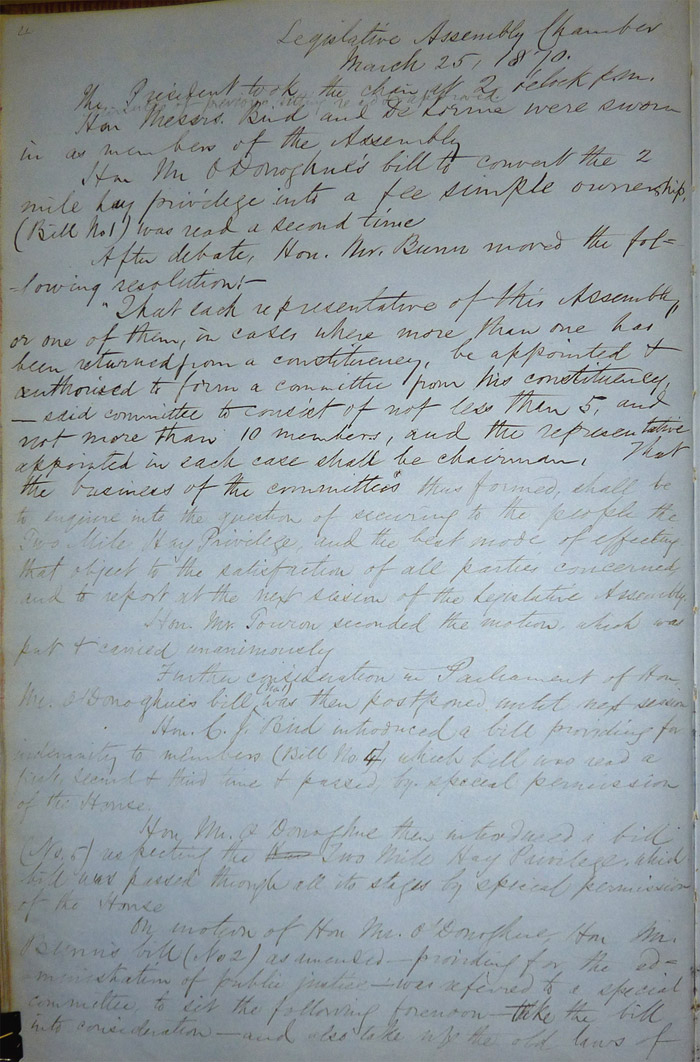 Legislative Assembly Chamber
March 25, 1870.
The President took the chair at 2 oclock p.m.
Minutes of previous sitting read & approved
Hon Messrs. Bird and De Lorme were sworn
in as members of the Assembly
Hon Mr O'Donoghue's bill to convert the 2
mile hay privilege into a fee simple ownership,
(Bill No 1) was read a second time
After debate, Hon. Mr. Bunn moved the fol=
-lowing resolution:-
"That each representative of this Assembly,
or one of them, in cases where more than one has
been returned from a constituency, be appointed &
authorised to form a committee from his constituency,
— said committee to consist of not less than 5, and
not more than 10 members, and the representative
appointed in each case shall be chairman. That
the business of the committees thus formed, shall be
to enquire into the question of securing to the people the
Two Mile Hay Privilege, and the best mode of effecting
that object to the satisfaction of all parties concerned
and to report at the next session of the Legislative Assembly
Hon. Mr. Touron seconded the motion, which was
put & carried unanimously
Further consideration in Parliament of Hon.
Mr. O'Donoghue's bill (No 1) was then postponed until next session
Hon. C. J. Bird introduced a bill providing for
indemnity to members (Bill No. 4), which bill was read a
first, second & third time & passed by special permission
of the House.
Hon. Mr. O'Donoghue then introduced a bill
(No. 5) respecting the Two Mile Hay Privilege, which
bill was passed through all its stages by special permission
of the House
On motion of Hon Mr. O'Donoghue, Hon Mr.
Bunn's bill (No 2) as amended — providing for the ad=
-ministration of public justice — was referred to a special
committee, to sit the following forenoon — take the bill
into consideration — and also take up the old laws of